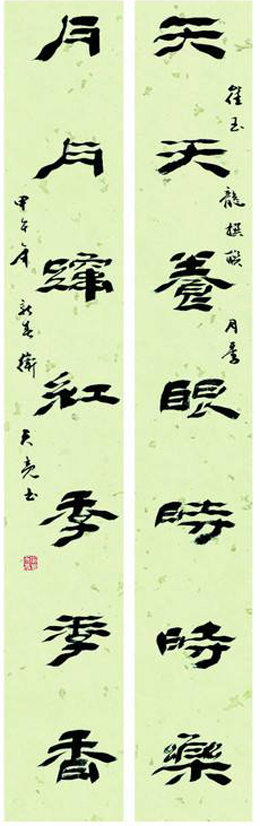 天天養眼時時樂
崔玉龍撰聯 月季
月月蹿紅季季香
甲午年新春衛天亮书